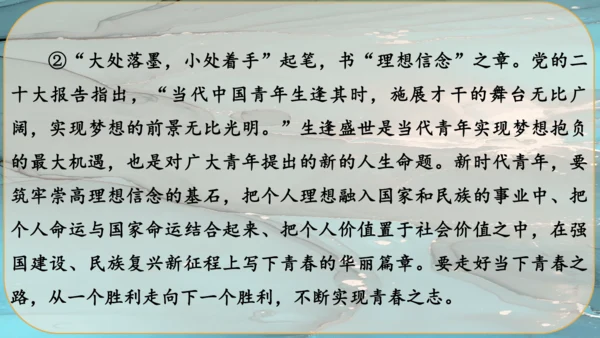 ②“大处落墨，小处着手”起笔，书“理想信念”之章。党的二
十大报告指出，“当代中国青年生逢其时，施展才干的舞台无比广
阔，实现梦想的前景无比光明。”生逢盛世是当代青年实现梦想抱负
的最大机遇，也是对广大青年提出的新的人生命题。新时代青年，要
筑牢崇高理想信念的基石，把个人理想融入国家和民族的事业中、把
个人命运与国家命运结合起来、把个人价值置于社会价值之中，在强
国建设、民族复兴新征程上写下青春的华丽篇章。要走好当下青春之
路，从一个胜利走向下一个胜利，不断实现青春之志。